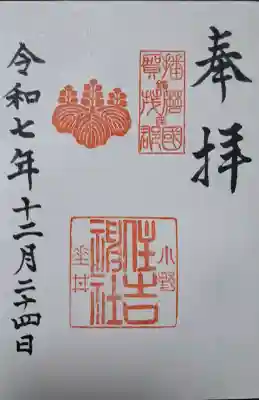 奉拝
播磨國
賀茂郡
小野
住吉
神社
垂井
令和七年十二月二十四日